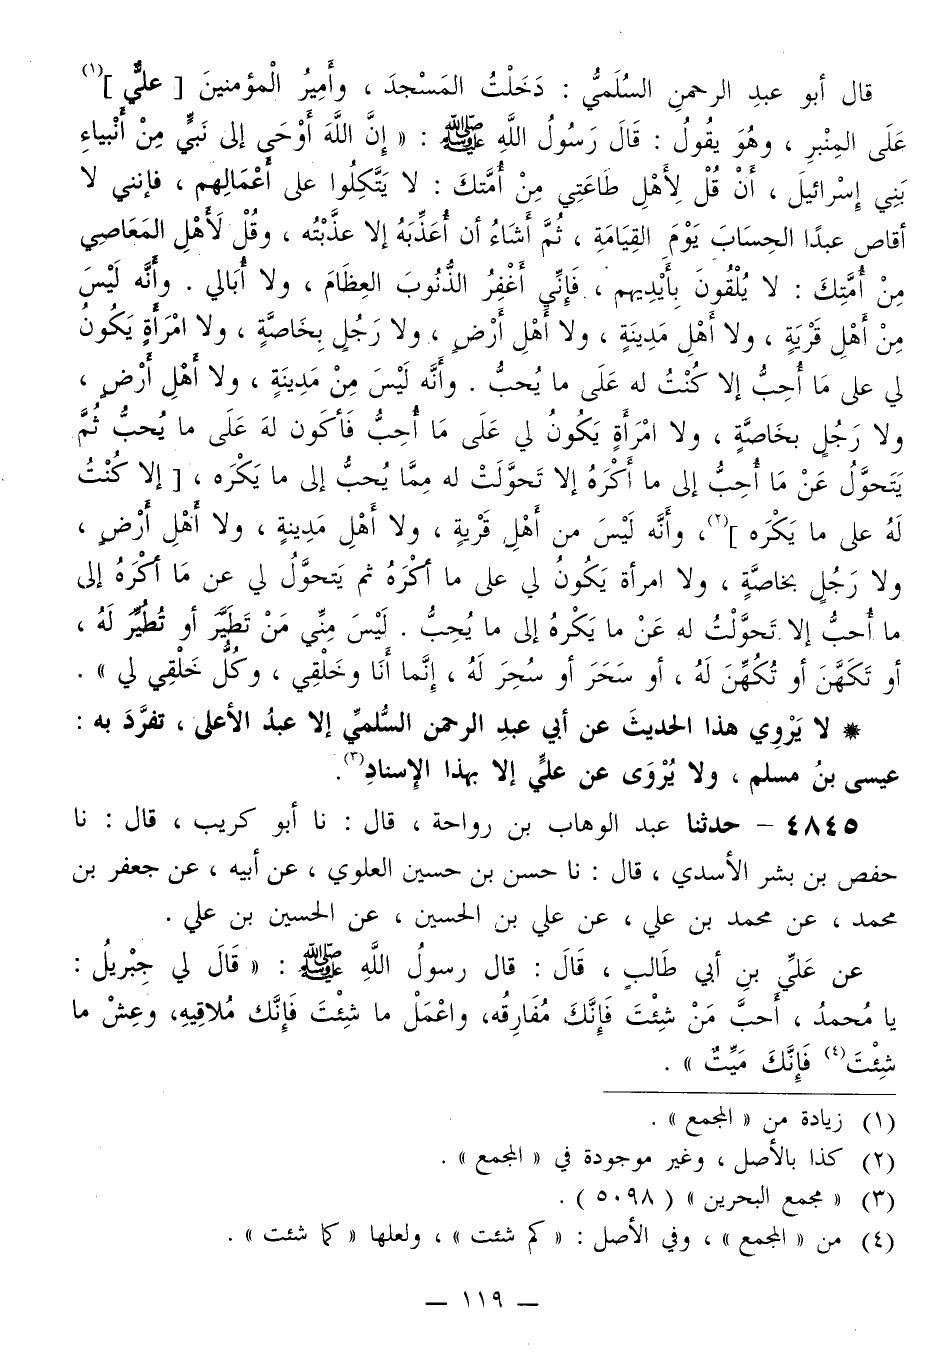 قال أبو عبد الرحمن السُلَميُّ : دَخَلْتُ المَسْجدَ ، وأَمِيرُ الْمؤمنينَ [ عليٌّ ](١)
عَلَى المِنْبرِ ، وهُوَ يقُولُ : قَالَ رَسُولُ اللَّهِ ﷺ : « إنَّ اللَّهَ أَوْحَى إلى نَبيٍّ مِنْ أَنْبياءِ
بَنِي إِسْرائيلَ ، أَنْ قُلْ لِأَهْلِ طَاعَتِي مِنْ أُمَّتكَ : لا يَتَّكِلُوا على أَعْمَالِهم ، فإنني لا
أقاص عبدًا الحِسَابَ يَوْمَ القِيَامَةِ ، ثُمَّ أَشَاءُ أن أُعَذِّبَهُ إلا عذَّبْته ، وقُلْ لَأَهْلِ المَعَاصِي
مِنْ أُمَّتِكَ : لا يُلْقُونَ بِأَيْدِيهم ، فَإِنِّي أَغْفِرُ الذُّنُوبَ العِظَامَ ، ولا أُبَالي . وأَنَّه لَيْسَ
مِنْ أَهْلِ قَرْيَةٍ ، ولا أَهْلِ مَدِينَةٍ ، ولا أَهْلِ أَرْضٍ ، ولا رَجُلٍ بِخَاصَّةٍ ، ولا امْرَأَةٍ يَكُونُ
لي على مَا أُحِبُّ إلا كُنْتُ له عَلَى ما يُحبُّ . وأَنَّه لَيْسَ مِنْ مَدِينَةٍ ، ولا أَهْلِ أَرْضٍ ،
ولا رَجُلٍ بخاصَّةٍ ، ولا امْرَأَةٍ يَكُونُ لي عَلَى مَا أُحِبُّ فَأكَون لهَ عَلَى ما يُحبُّ ثُمَّ
يَتَحوَّلُ عَنْ مَا أُحِبُّ إلى ما أَكْرَهُ إلا تَحوَّلَتْ له مِمَّا يُحبُّ إلى ما يَكْرَه ، [ إلا كُنْتُ
لَهُ على ما يَكْرَه ](٢)، وأَنَّه لَيْسَ من أَهْلِ قَرْيةٍ ، ولا أَهْلِ مَدِينةٍ ، ولا أَهْلِ أَرْضٍ ،
ولا رَجُلٍ بخاصَّةٍ ، ولا امرأة يَكُونُ لي على ما أكْرَهُ ثم يَتحوَّلُ لي عن مَا أكْرَهُ إلى
ما أُحبُّ إلا تَحوَّلْتُ له عَنْ ما يَكْرهُ إلى ما يُحِبُّ . لَيْسَ مِنِّي مَنْ تَطَيَّر أو تُطُيِّر لَهُ ،
أو تَكَهَّنَ أو تُكُهِّنَ لَهُ ، أو سَحَرَ أو سُحِرَ لَهُ ، إنَّما أَنَا وخَلْقِي ، وكُلُّ خَلْقِي لي » .
* لا يَرْوِي هذا الحديثَ عن أبي عبد الرحمن السُّلميِّ إلا عبدُ الأعلى ، تفرَّدَ به :
عيسى بنُ مسلم ، ولا يُرْوَى عن عليٍّ إلا بهذا الإسنادِ(٣).
٤٨٤٥ – حدثنا عبد الوهاب بن رواحة ، قال : نا أبو كريب ، قال : نا
حفص بن بشر الأسدي ، قال : نا حسن بن حسين العلوي ، عن أبيه ، عن جعفر بن
محمد ، عن محمد بن علي ، عن علي بن الحسين ، عن الحسين بن علي .
عن عَليِّ بنِ أبي طَالبٍ ، قَالَ : قال رسولُ اللَّهِ ﷺ : « قَالَ لي جِبْريلُ :
يا مُحمدُ ، أَحبَّ مَنْ شِئْتَ فَإِنَّكَ مُفَارقُه، واعْمَلْ ما شِئتَ فَإِنَّك مُلاقِيهِ، وعِشْ ما
شِئْتَ(٤) فَإِنَّكَ مَيِّتٌ » .
(١) زيادة من « المجمع » .
(٢) كذا بالأصل ، وغير موجودة في « المجمع » .
(٣) « مجمع البحرين » ( ٥٠٩٨ ) .
(٤) من « المجمع » ، وفي الأصل : « كم شئت » ، ولعلها « كما شئت » .
– ١١٩ –